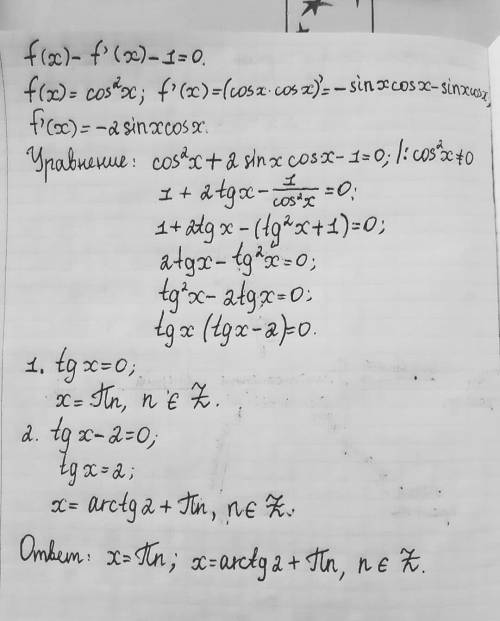 f(x) - f'(x) - 1 = 0.
f(x) = cos²x; f'(x) = (cosx·cosx)' = -sinxcosx - sinxcosx;
f'(x) = -2sinxcosx.
Уравнение: cos²x + 2sinxcosx - 1 = 0; /: cos²x ≠ 0
1 + 2tgx - 1/cos²x = 0;
1 + 2tgx - (tg²x + 1) = 0;
2tgx - tg²x = 0;
tg²x - 2tgx = 0;
tgx (tgx - 2) = 0.
1. tgx = 0;
x = πn, n ∈ Z.
2. tgx - 2 = 0;
tgx = 2;
x = arctg2 + πn, n ∈ Z.
Ответ: x = πn; x = arctg2 + πn, n ∈ Z.